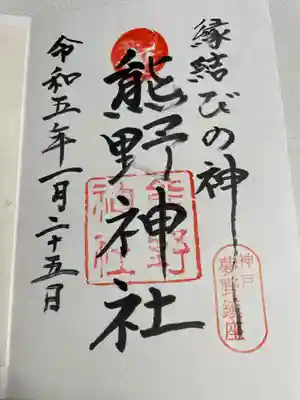 縁結びの神
熊野神社
令和五年一月二十五日
熊野
神社
神戸
夢野鎮座